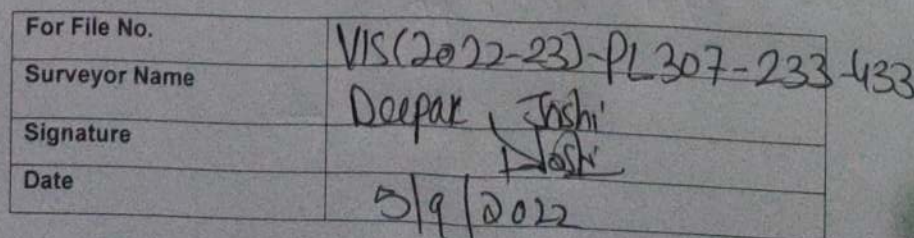 For File No. VIS(2022-23)-PL307-233-433
Surveyor Name Deepak Joshi
Signature DJoshi
Date 5/9/2022